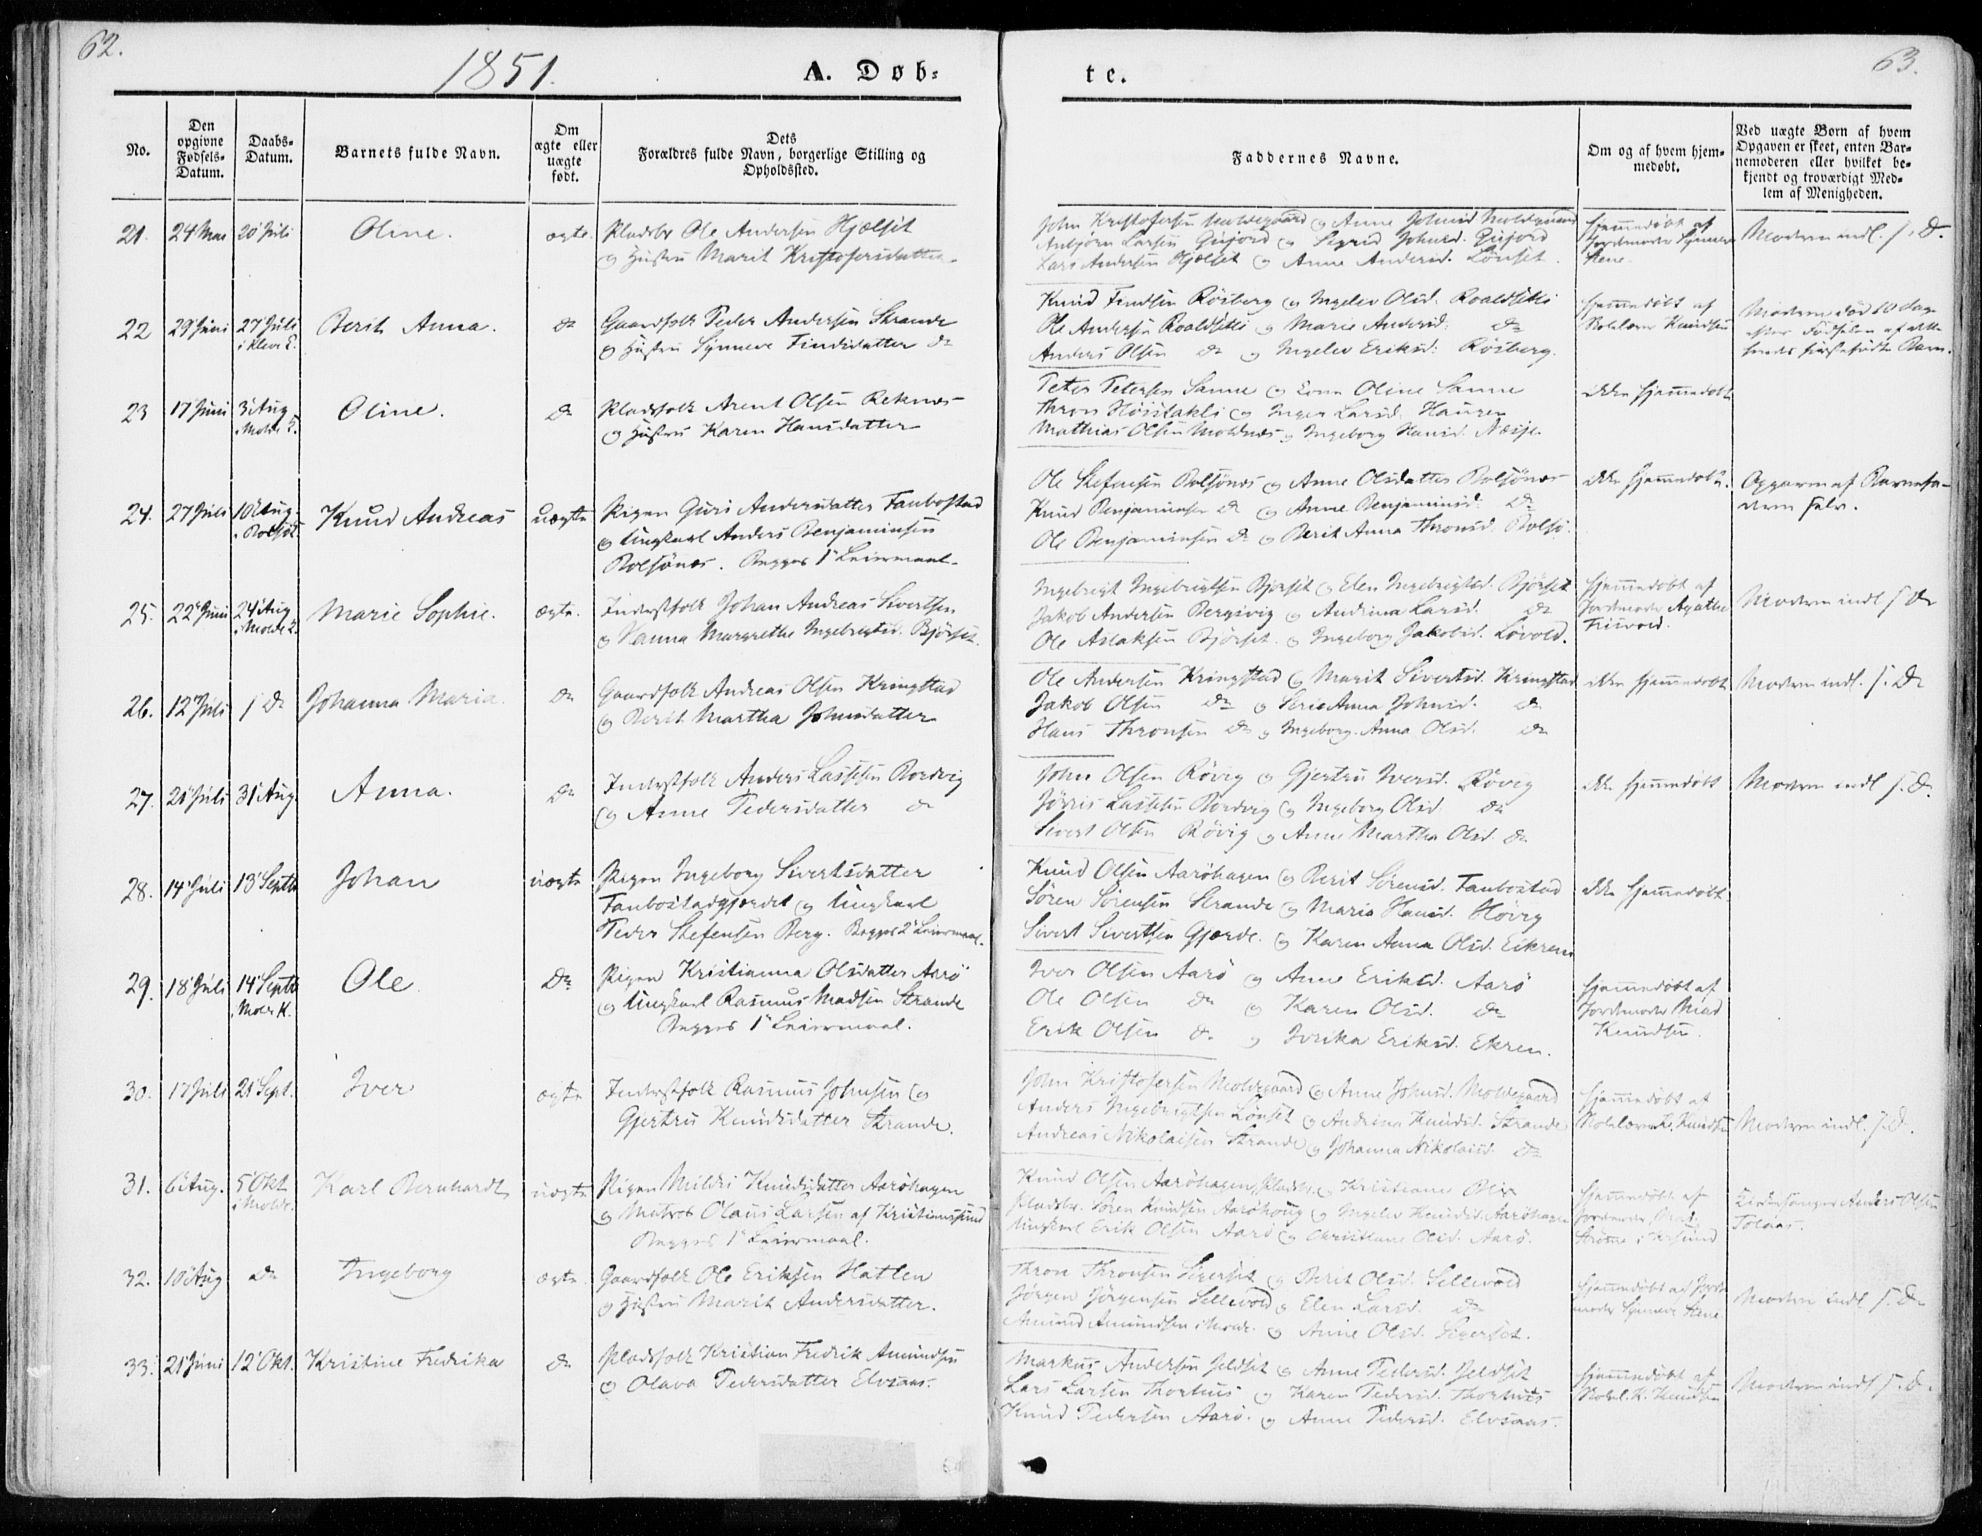 62.
1851.
A. Døb-
te.
63.
No.
Den opgivne Fødsels-Datum.
Daabs-Datum.
Barnets fulde Navn.
Om ægte eller uægte født.
Dets Forældres fulde Navn, borgerlige Stilling og Opholdssted.
Faddernes Navne.
Om og af hvem hjemmedøbt.
Ved uægte Børn af hvem Opgaven er skeet, enten Barnemoderen eller hvilket bekjendt og troværdigt Medlem af Menigheden.
21. 24 Mai 20 Juli Oline. ægte. Pladsbr Ole Andersen Hjælset
og Hustru Marit Kristofersdatter
John Kristofersen Moldegaard og Anne Johnsd Moldegaard
Anbjørn Larsen Gujord og Sigrid Johnsd. Gujord
Lars Andersen Hjelset og Anne Andersd. Lønset.
Hjemmedøbt af
Jordmoder Synneve
Stene
Moderen indl. s. D.
22 29 Juni 27 Juli
i Kleve K.
Berit Anna. Do Gaardfolk Peder Andersen Strande
og Hustru Synneve Findsdatter Do
Knud Findsen Røsberg og Ingelev Olsd. Roaldsetli
Ole Andersen Roaldsetli og Marie Andersd. Do
Anders Olsen Do og Ingelev Eriksd: Røsberg.
Hjemmedøbt af
Skolelærer Knudsen
Moderen død 10 Dage
efter Fødselen af dette
hendes førstefødte Barn.
23 17 Juni 3 Aug
i Molde K.
Oline. Do Pladsfolk Arent Olsen Reknes
og Hustru Karen Hansdatter
Peter Petersen Sanne og Kone Oline Sanne
Thron Høistakli og Inger Larsd. Haugen
Mathias Olsen Moldnæs og Ingeborg Hansd. Næsje.
ikke hjemmedøbt
24. 27 Juli 10 Aug.
i Bolsø K.
Knud Andreas uægte Pigen Guri Andersdatter Fanbostad
og Ungkarl Anders Benjaminsen
Bolsønæs. Begges 1e Leiermaal.
Ole Stefensen Bolsønes og Anne Olsdatter Bolsønes
Knud Benjaminsen Do og Anne Benjaminsd. Do
Ole Benjaminsen Do og Berit Anna Thronsd. Bolsø.
ikke hjemmedøbt.
Opgaven af Barnefa-
deren selv.
25. 22 Juni 24 Aug
i Molde K.
Marie Sophie. ægte. Inderstfolk Johan Andreas Sivertsen
og Hanna Margrethe Ingebrigtsd. Bjørset
Ingebrigt Ingebrigtsen Bjørset og Elen Ingebrigtsd. Bjørset
Jakob Andersen Bergsvig og Andrina Larsd. Do
Ole Aslaksen Bjørset. og Ingeborg Jakobsd. Løvold.
Hjemmedøbt af
Jordmoder Agathe
Friisvold.
Moderen indl s D
26. 12 Juli s D Johanna Maria. Do Gaardfolk Andreas Olsen Kringstad
og Berit Martha Johnsdatter
Ole Andersen Kringstad og Marit Sivertsd. Kringstad
Jakob Olsen Do og Seri Anna Johnsd. Do
Hans Thronsen Do og Ingeborg Anna Olsd. Do
ikke hjemmedøbt Moderen indl. s. D
27. 21 Juli 31 Aug. Anna. Do Inderstfolk Anders Lassesen Bordvig
og Anne Pedersdatter Do
John Olsen Røvig og Gjertru Iversd. Røvig
Jørris Lassesen Bordvig og Ingeborg Olsd Do
Sivert Olsen Røvig og Anne Martha Olsd. Do
ikke hjemmedøbt Moderen indl s. D.
28. 14 Juli 13 Septb Johan uægte Pigen Ingeborg Sivertsdatter
Fanbostadgjerdet og Ungkarl
Peder Stefensen Berg. Begges 2 Leiermaal.
Knud Olsen Aarøhagen og Berit Sørensd. Fanbostad
Søren Sørensen Strande og Maria Hansd. Høvig
Sivert Sivertsen Gjerde. og Karen Anna Olsd. Eikrem
ikke hjemmedøbt.
29. 18 Juli 14 Septb
i Molde K.
Ole Do Pigen Kristianna Olsdatter Aarø
og Ungkarl Rasmus Madsen Strande
Begges 1e Leiermaal.
Iver Olsen Aarø og Anne Eriksd. Aarø
Ole Olsen Do og Karen Olsd. Do
Erik Olsen Do og Jonika Eriksd. Ekren.
Hjemmedøbt af
Jordmoder Mad
Knudsen.
30. 17 Juli 21 Sept. Iver ægte Inderstfolk Rasmus Johnsen og
Gjertru Knudsdatter Strande.
John Kristofersen Moldegaard og Anne Johnsd. Moldegaard
Anders Ingebrigtsen Lønset og Andrina Knudsd. Strande
Andreas Nikolaisen Strande og Johanna Nikolaisd. Do
Hjemmedøbt af
Skolelærer K. Knudsen
Moderen indl. s. D.
31. 6 Aug. 5 Okt
i Molde.
Karl Bernhardt uægte Pigen Mildri Knudsdatter Aarøhagen
og Matros Olaus Larsen af Kristianssund
Begges 1e Leiermaal.
Knud Olsen Aarøhagen, Pladsbr. og Kristiane Blix
Pladsbr. Søren Knudsen Aarøhoug og Ingelev Knudsd. Aarøhagen
Ungkarl Erik Olsen Aarø og Christiane Olsd. Aarø.
Hjemmedøbt af
Jordmoder
Strøme i Krsund
Kirkesanger Anders Olsen
Tolaas.
32. 10 Aug Do Ingeborg ægte Gaardfolk Ole Eriksen Hatlen
og Hustru Marit Andersdatter.
Thron Thronsen Sigerset og Berit Olsd. Sellevold
Jørgen Jørgensen Sellevold og Elen Larsd. Do
Amund Amundsen i Molde. og Anne Olsd. Sigerset.
Hjemmedøbt af Jord-
moder Synneve Stene
Moderen indl. s. D.
33. 21 Juni 12 Okt. Kristine Fredrika Do Pladsfolk Kristian Fredrik Amundsen
og Olava Pedersdatter Elvsaas.
Markus Andersen Jeldset og Anne Pedersd. Jeldset
Lars Larsen Thorhus og Karen Pedersd. Thorhus
Knud Pedersen Aarø. og Anne Pedersd. Elvsaas.
Hjemmedøbt af
Skolel. K. Knudsen
Moderen indl s. D.